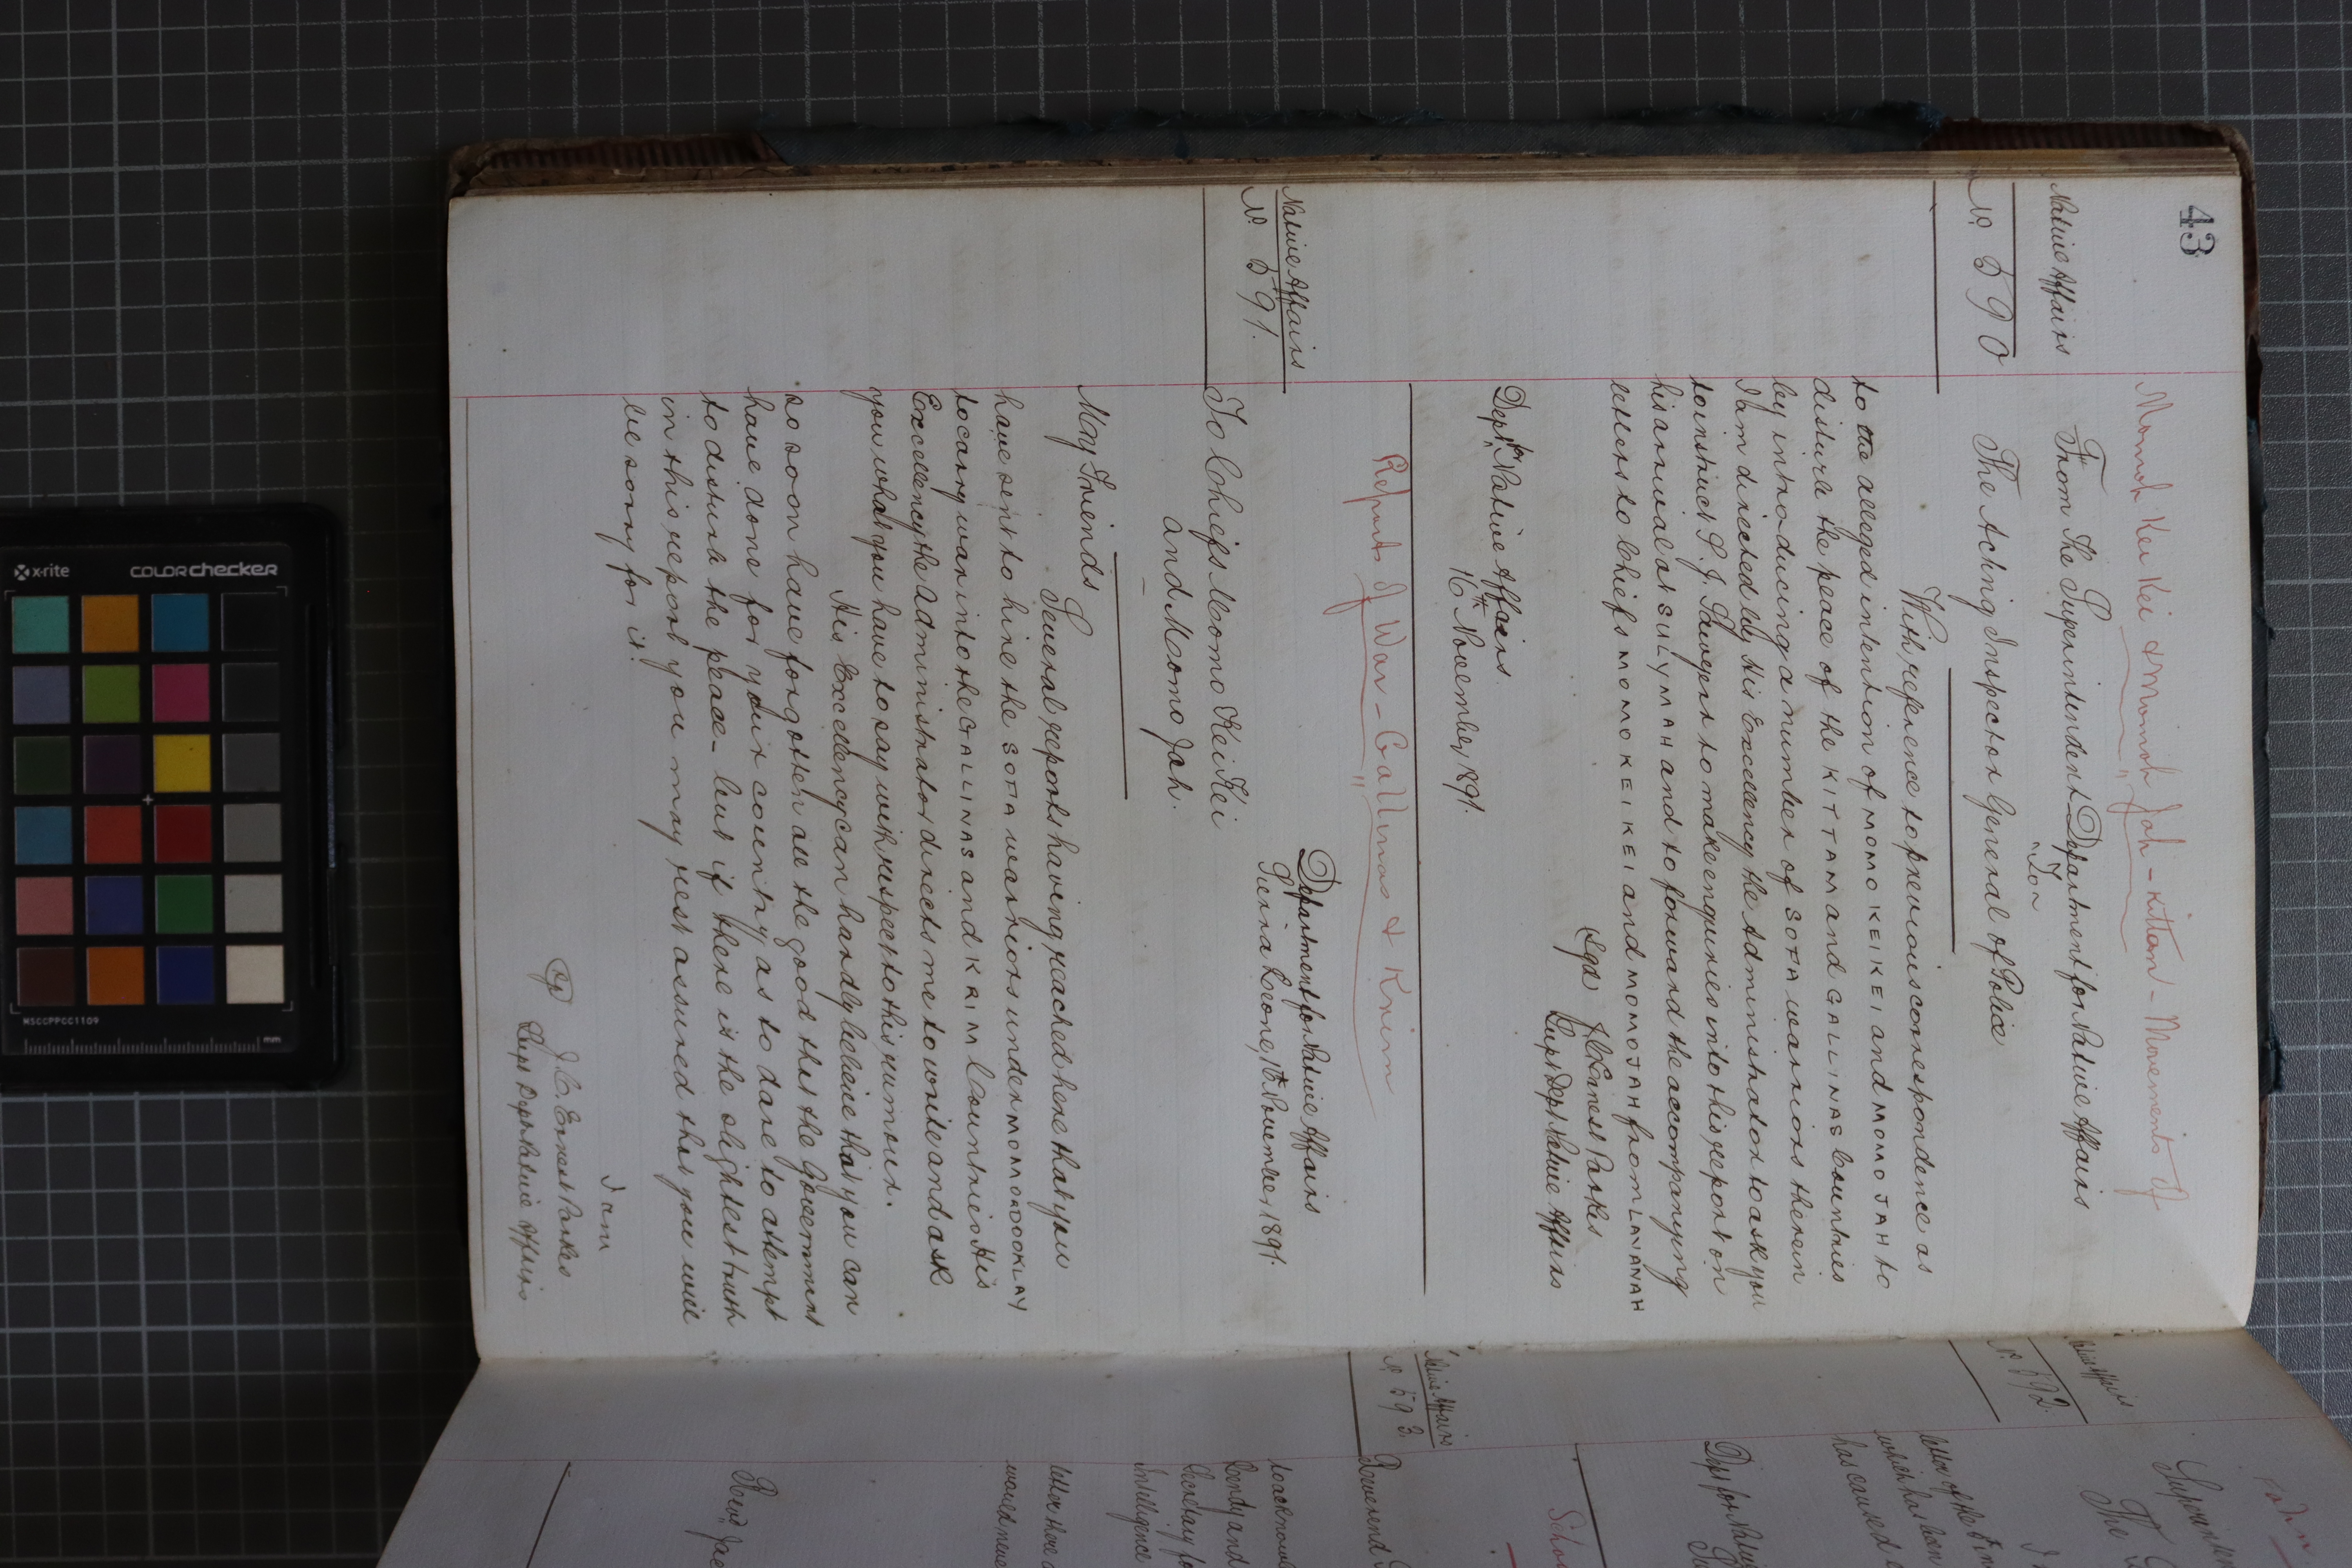 43
Momoh Kei Kei & Momoh Jah - Kittam - Movements of
Native Affairs
No. 590
From The Superintendent Department for Native Affairs
To
The Acting Inspector General of Police
With reference to previous correspondence as
to the alleged intention of MOMO KEI KEI and MOMO JAH to
disturb the peace of the KITTAM and GALLINAS Countries
by introducing a number of SOFA warriors therein
I am directed by His Excellency the Administrator to ask you
to instruct S. I. Sawyerr to make enquiries into this report on
his arrival at SULYMAH and to forward the accompanying
letters to Chiefs MOMO KEI KEI and MOMO JAH from LAVANAH
Sgd J.C. Ernest Parkes
Supt Dept Native Affairs
Dept for Native Affairs
16th November, 1891.
Reports of War - Gallinas & Krim
Native Affairs
No. 591.
Department for Native Affairs
Sierra Leone, 16th November, 1891.
To Chiefs Momo Kei Kei
and Momo Jah.
My Friends
Several reports having reached here that you
have sent to hire the SOFA warriors under
to carry war into the GALLINAS and KRIM Countries His
Excellency the Administrator directs me to write and ask
you what you have to say with respect to this rumour.
His Excellency can hardly believe that you can
so soon have forgotten all the good that the Government
have done for your country as to dare to attempt
to disturb the peace - but if there is the slightest truth
in this report you may rest assured that you will
be sorry for it.
I am
Sgd J.C. Ernest Parkes
Supt Dept Native Affairs
Native Affairs
No. 592.
The
letter of the
which has been
has caused
Dept for Native
Native Affairs
No. 593.
Reverend
to acknow
Bendy and
Secretary fo
Intelligence
letter there
would neve
Revd. Jae
x-rite
COLORchecker
MSCCPPCC1109
mm